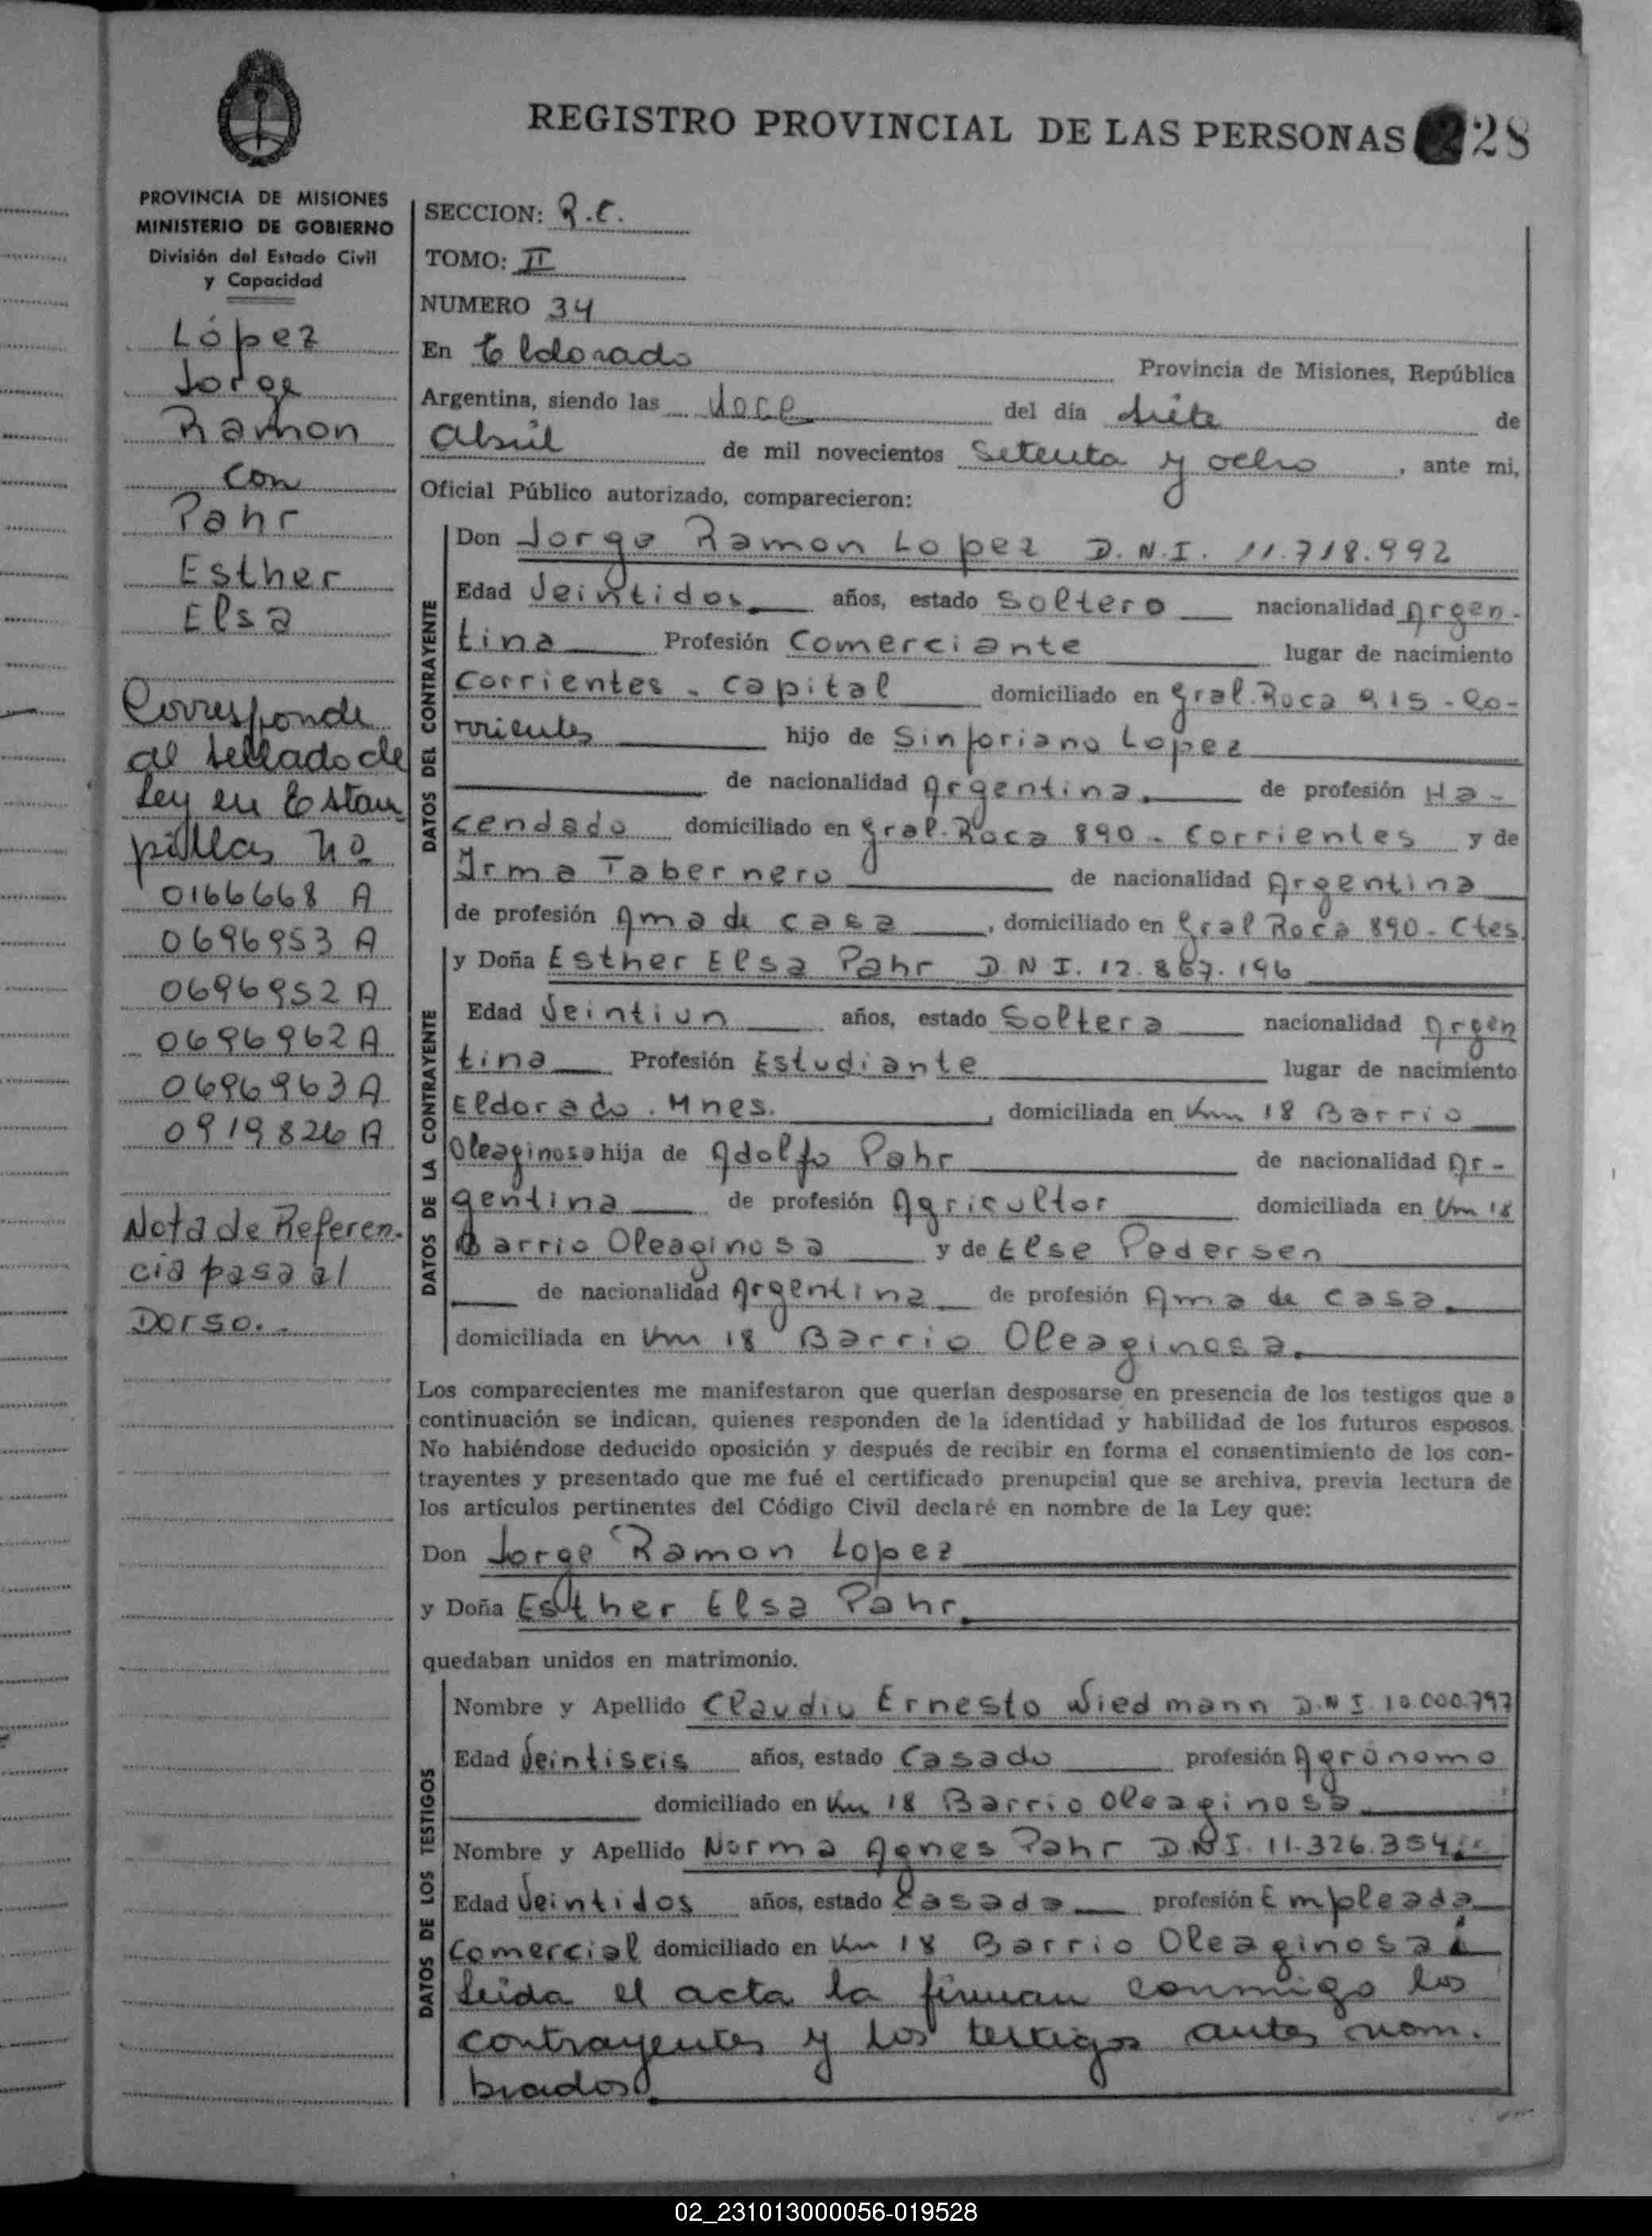 REGISTRO PROVINCIAL DE LAS PERSONAS 28
PROVINCIA DE MISIONES
MINISTERIO DE GOBIERNO
División del Estado Civil
y Capacidad
López
Jorge
Ramon
con
Pahr
Esther
Elsa
Corresponde
al sellado de
Ley en Estam
pillas Nº
0166668 A
0696953 A
0696952 A
0696962 A
0696963 A
0919826 A
Nota de Referen-
cia pasa al
Dorso.-
SECCION: R.C.
TOMO: II
NUMERO 34
En Eldorado Provincia de Misiones, República
Argentina, siendo las doce del día siete de
Abril de mil novecientos Setenta y ocho, ante mi,
Oficial Público autorizado, comparecieron:
DATOS DEL CONTRAYENTE
Don Jorge Ramon Lopez D.N.I. 11.718.992
Edad Veintidos años, estado Soltero nacionalidad Argen-
tina Profesión Comerciante lugar de nacimiento
Corrientes - Capital domiciliado en Gral. Roca 915 - Co-
rrientes hijo de Sinforiano Lopez
de nacionalidad Argentina de profesión Ha-
cendado domiciliado en Gral. Roca 890 - Corrientes y de
Irma Tabernero de nacionalidad Argentina
de profesión Ama de casa, domiciliado en Gral Roca 890 - Ctes.
DATOS DE LA CONTRAYENTE
y Doña Esther Elsa Pahr D.N.I. 12.867.196
Edad Veintiun años, estado Soltera nacionalidad Argen
tina Profesión Estudiante lugar de nacimiento
Eldorado. Mnes., domiciliada en Km 18 Barrio
Oleaginosa hija de Adolfo Pahr de nacionalidad Ar-
gentina de profesión Agricultor domiciliada en Km 18
Barrio Oleaginosa y de Else Pedersen
de nacionalidad Argentina de profesión Ama de casa.
domiciliada en Km 18 Barrio Oleaginosa.
Los comparecientes me manifestaron que querían desposarse en presencia de los testigos que a
continuación se indican, quienes responden de la identidad y habilidad de los futuros esposos.
No habiéndose deducido oposición y después de recibir en forma el consentimiento de los con-
trayentes y presentado que me fué el certificado prenupcial que se archiva, previa lectura de
los artículos pertinentes del Código Civil declaré en nombre de la Ley que:
Don Jorge Ramon Lopez
y Doña Esther Elsa Pahr
quedaban unidos en matrimonio.
DATOS DE LOS TESTIGOS
Nombre y Apellido Claudio Ernesto Wiedmann D.N.I. 10.000.797
Edad Veintiseis años, estado Casado profesión Agrónomo
domiciliado en Km 18 Barrio Oleaginosa
Nombre y Apellido Norma Agnes Pahr D.N.I. 11.326.354
Edad Veintidos años, estado Casada profesión Empleada
Comercial domiciliado en Km 18 Barrio Oleaginosa
Leida el acta la firman conmigo los
contrayentes y los testigos antes nom.
brados.
02_231013000056-019528